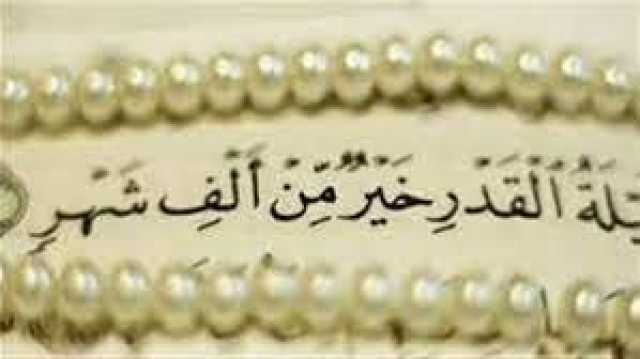 ـيْلَةُ الْقَدْرِ خَيْرٌ مِّنْ أَلْفِ شَهْرٍ